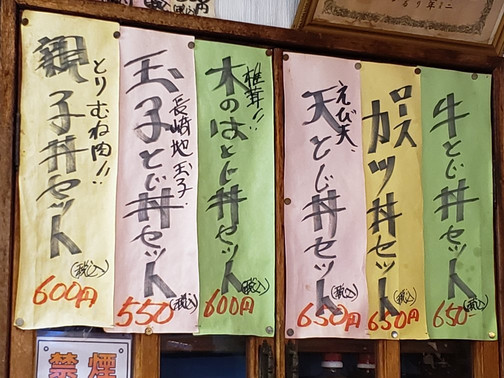 牛とじ丼セット
(税込)
650
ロース
カツ丼セット
(税込)
650円
えび天
天とじ丼セット
(税込)
650円
椎茸!!
木のはとじ丼セット
(税込)
600円
玉子とじ丼セット
長崎地玉子
(税込)
550
とりむね肉!!
親子丼セット
(税込)
600円
禁煙